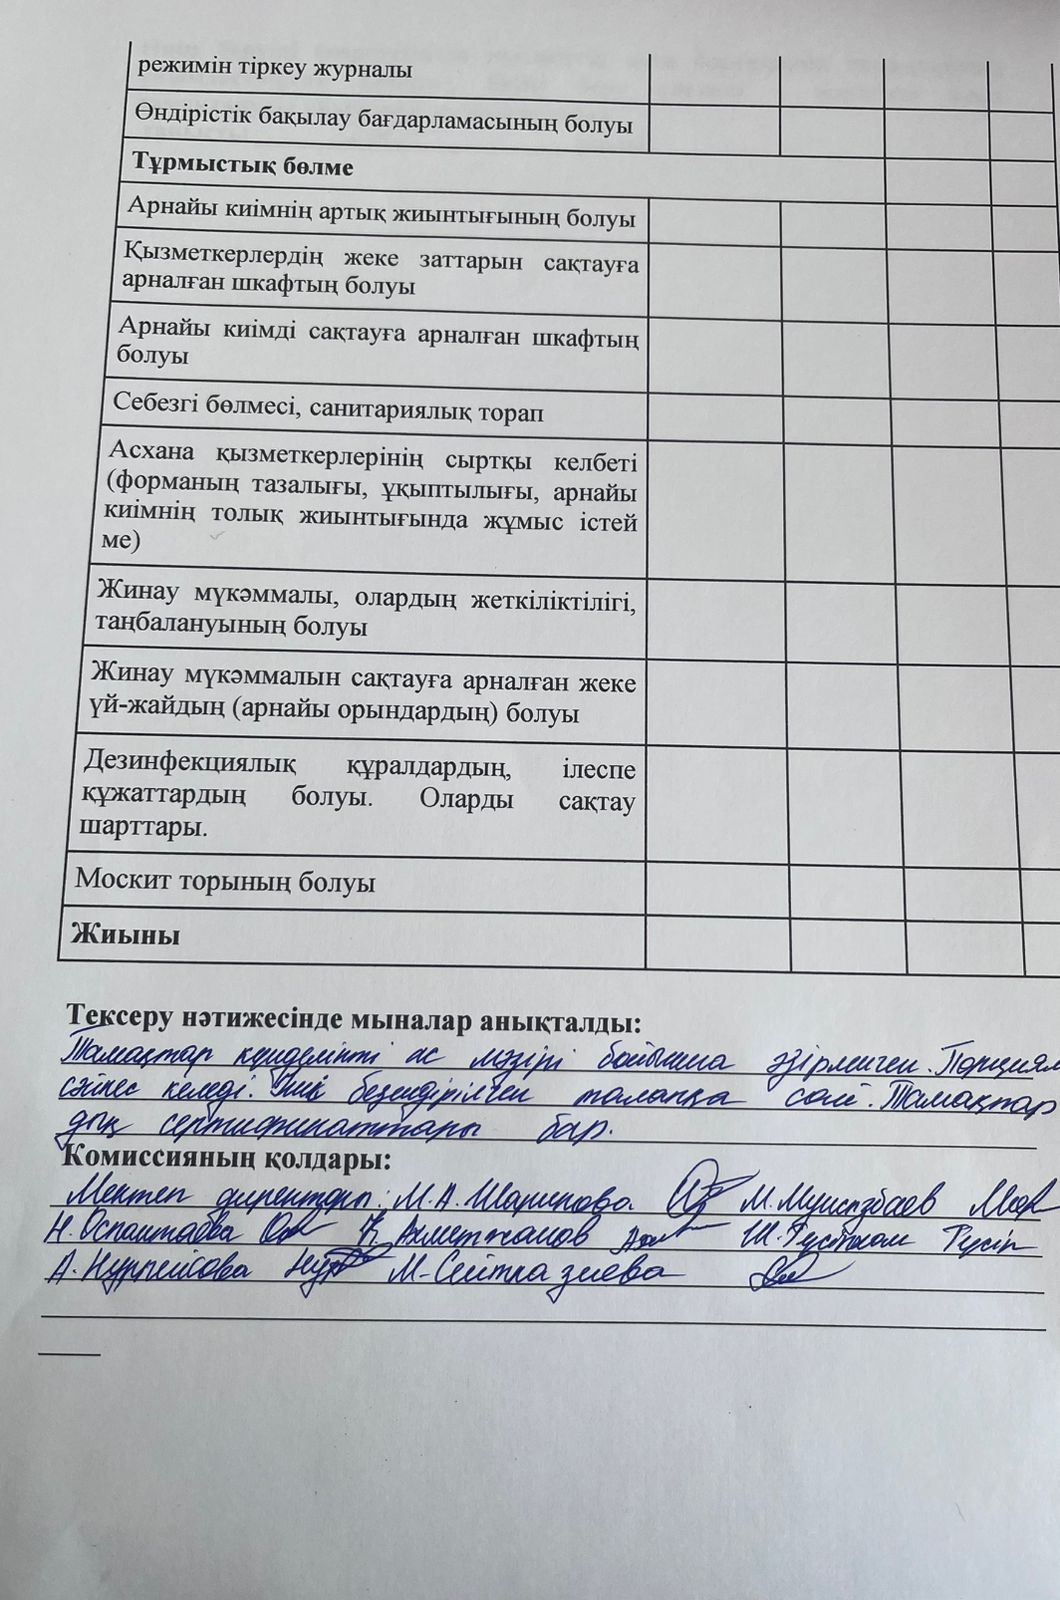 режимін тіркеу журналы
Өндірістік бақылау бағдарламасының болуы
Тұрмыстық бөлме
Арнайы киімнің артық жиынтығының болуы
Қызметкерлердің жеке заттарын сақтауға
арналған шкафтың болуы
Арнайы киімді сақтауға арналған шкафтың
болуы
Себезгі бөлмесі, санитариялық торап
Асхана қызметкерлерінің сыртқы келбеті
(форманың тазалығы, ұқыптылығы, арнайы
киімнің толық жиынтығында жұмыс істей
ме)
Жинау мүкәммалы, олардың жеткіліктілігі,
таңбалануының болуы
Жинау мүкәммалын сақтауға арналған жеке
үй-жайдың (арнайы орындардың) болуы
Дезинфекциялық құралдардың, ілеспе
құжаттардың болуы. Оларды сақтау
шарттары.
Москит торының болуы
Жиыны
Тексеру нәтижесінде мыналар анықталды:
Тамақтар күнделікті ас мәзірі бойынша әзірленген. Порциял
сәйкес келеді. Іші безендірілген талапқа сай. Тамақтар
дың сертификаттары бар.
Комиссияның қолдары:
Мектеп директоры: М.А. Шарипова М.
Н. Оспантаева Ахметжанов Ш.
А. Нурпеисова М. Сейтказиева